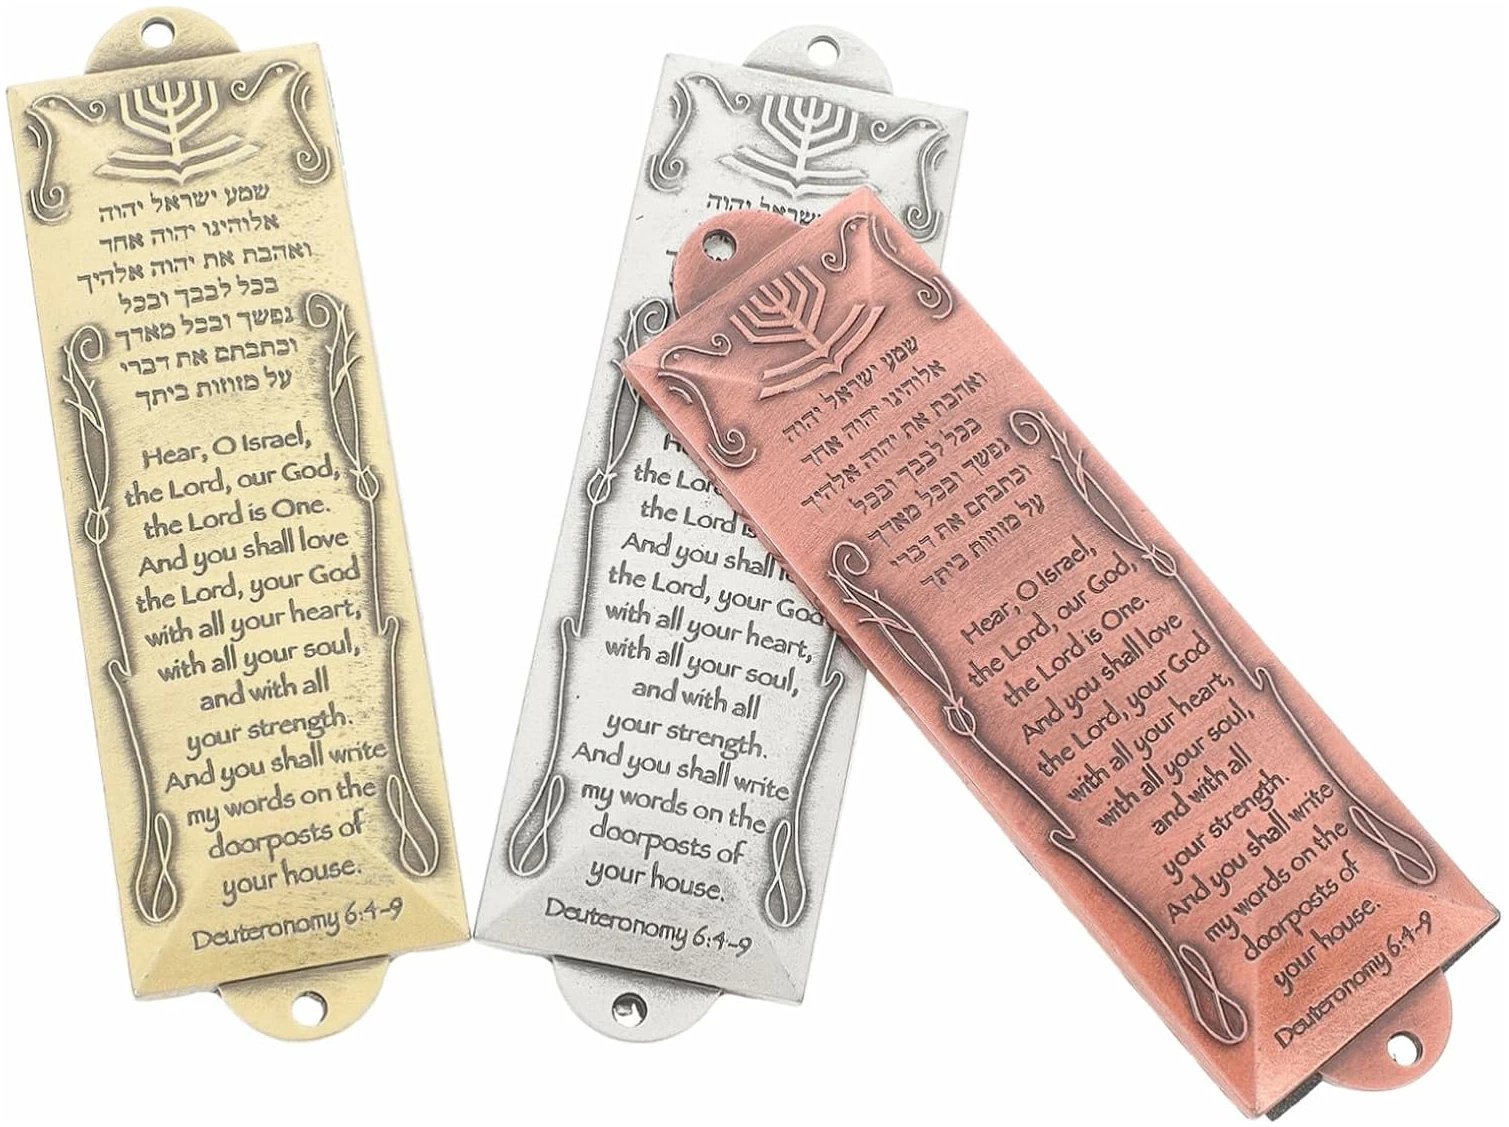 שמע ישראל יהוה
אלוהינו יהוה אחד
ואהבת את יהוה אלהיך
בכל לבבך ובכל
נפשך ובכל מאדך
וכתבתם את דברי
על מזוזות ביתך
Hear, O Israel,
the Lord, our God,
the Lord is One.
And you shall love
the Lord, your God
with all your heart,
with all your soul,
and with all
your strength.
And you shall write
my words on the
doorposts of
your house.
Deuteronomy 6:4-9
ישראל יהוה
the
the Lord
And you shall
the Lord, your God
with all your heart,
with all your soul,
and with all
your strength.
And you shall write
my words on the
doorposts of
your house.
Deuteronomy 6:4-9
שמע ישראל יהוה
אלוהינו יהוה אחד
ואהבת את יהוה אלהיך
בכל לבבך ובכל
נפשך ובכל מאדך
וכתבתם את דברי
על מזוזות ביתך
Hear, O Israel,
the Lord, our God,
the Lord is One.
And you shall love
the Lord, your God
with all your heart,
with all your soul,
and with all
your strength.
And you shall write
my words on the
doorposts of
your house.
Deuteronomy 6:4-9